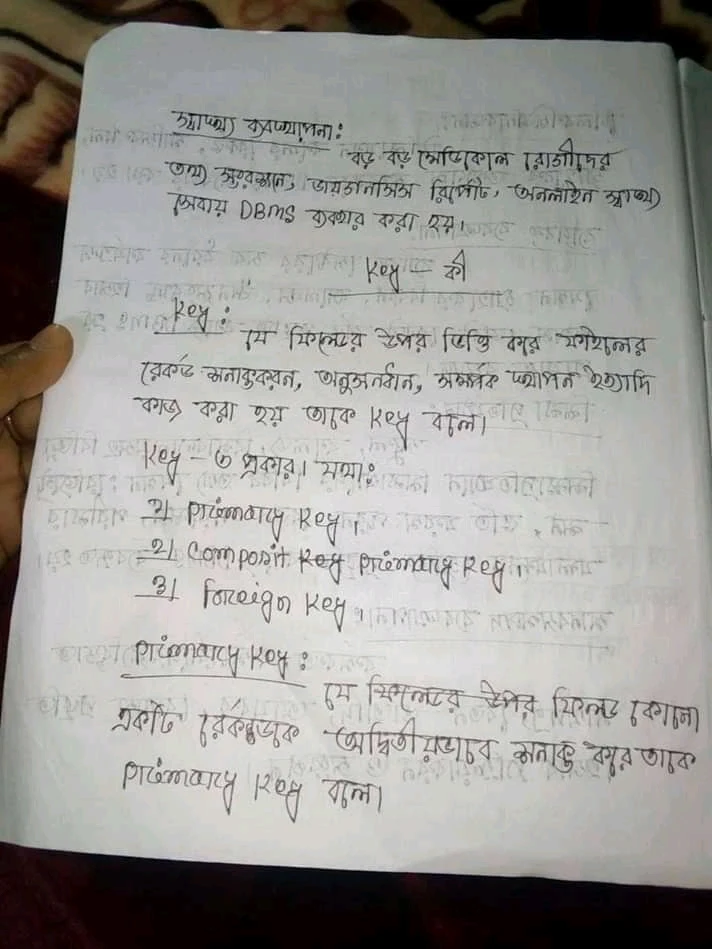 স্বাস্থ্য ব্যবস্থাপনা:
বড় বড় মেডিকেল রোগীদের
তথ্য সংরক্ষনে, ডায়াগনসিস রিপোর্ট, অনলাইন স্বাস্থ্য
সেবায় DBMS ব্যবহার করা হয়।
Key - কী
Key:
যে ফিল্ডের উপর ভিত্তি করে ফাইলের
রেকর্ড সনাক্তকরন, অনুসন্ধান, সম্পর্ক স্থাপন ইত্যাদি
কাজ করা হয় তাকে Key বলে।
Key - ৩ প্রকার। যথা:
১। Primary Key,
২। Composit Key Primary Key,
৩। Foreign Key,
Primary Key:
যে ফিল্ডের উপর ফিল্ড কোনো
একটি রেকর্ডকে অদ্বিতীয়ভাবে সনাক্ত করে তাকে
Primary Key বলে।